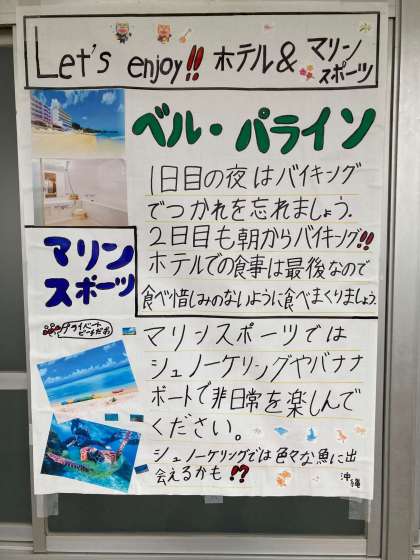 Let's enjoy!! ホテル& マリンスポーツ
ベル・パライソ
1日目の夜はバイキング
でつかれを忘れましょう.
2日目も朝からバイキング!!
ホテルでの食事は最後なので
食べ惜しみのないように食べまくりましょう.
マリン
スポーツ
プライベート
ビーチだお
マリンスポーツでは
シュノーケリングやバナナ
ボートで非日常を楽しんで
ください。
シュノーケリングでは色々な魚に出
会えるかも!?
沖縄